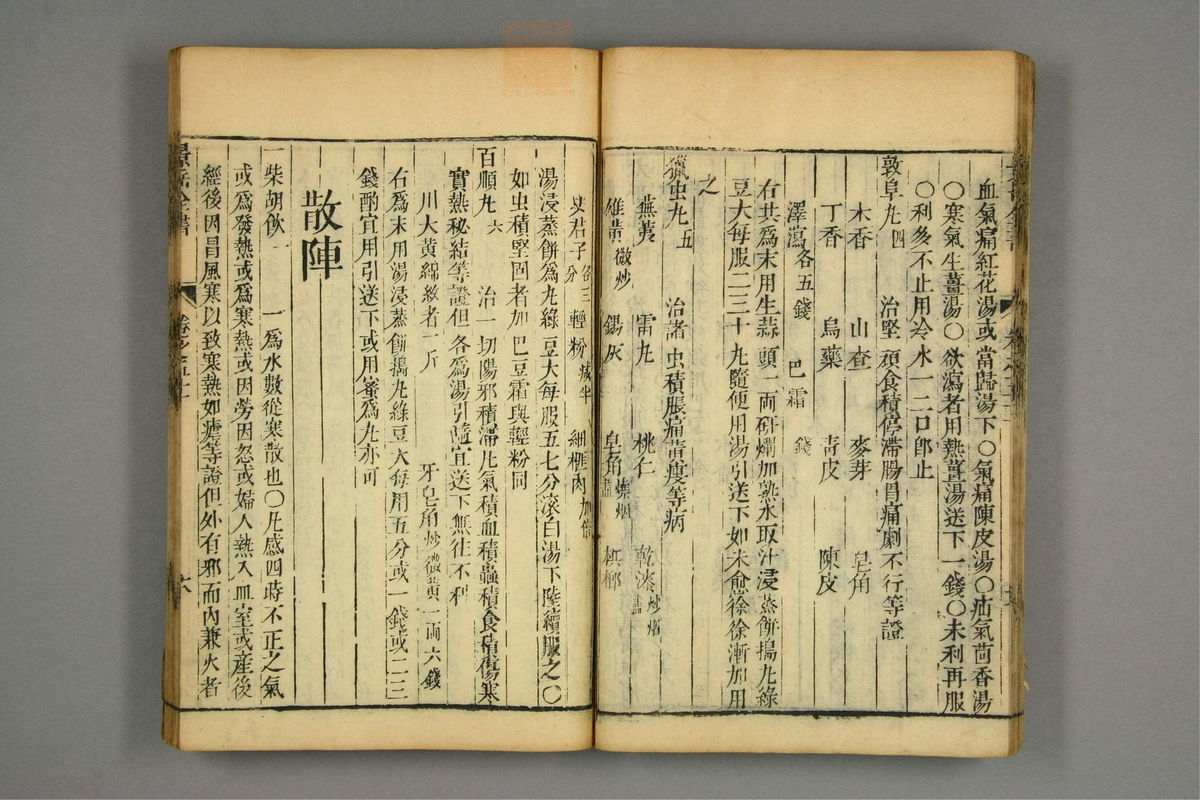 血氣痛紅花湯或當歸湯下〇氣痛陳皮湯〇疝氣茴香湯
〇寒氣生薑湯〇欲瀉者用熱薑湯送下一錢〇未利再服
〇利多不止用冷水一二口卽止
敦阜丸四 治堅頑食積停滯腸胃痛劇不行等證
木香 山查 麥芽 皂角
丁香 烏藥 青皮 陳皮
澤瀉各五錢 巴霜 錢
右共爲末用生蒜頭一兩研爛加熟水取汁浸蒸餅搗丸綠
豆大每服二三十丸隨便用湯引送下如未愈徐徐漸加用
之
獵虫丸五 治諸虫積脹痛黃瘦等病
蕪荑 雷丸 桃仁 乾漆炒烟盡
雄黃微炒 錫灰 皂角燒烟盡 檳榔
史君子各三分 輕粉減半 細榧肉加倍
湯浸蒸餅爲丸綠豆大每服五七分滚白湯下陸續服之〇
如虫積堅固者加巴豆霜與輕粉同
百順丸六 治一切陽邪積滯凡氣積血積蟲積食積傷寒
實熱秘結等證但各爲湯引隨宜送下無往不利
川大黃綿紋者一斤 牙皂角炒微黃一兩六錢
右爲末用湯浸蒸餅搗丸綠豆大每用五分或一錢或二三
錢酌宜用引送下或用蜜爲丸亦可
散陣
一柴胡飲一 一爲水數從寒散也〇凡感四時不正之氣
或爲發熱或爲寒熱或因勞因怒或婦人熱入血室或產後
經後因冒風寒以致寒熱如瘧等證但外有邪而內兼火者
景岳全書 卷之五十一 六